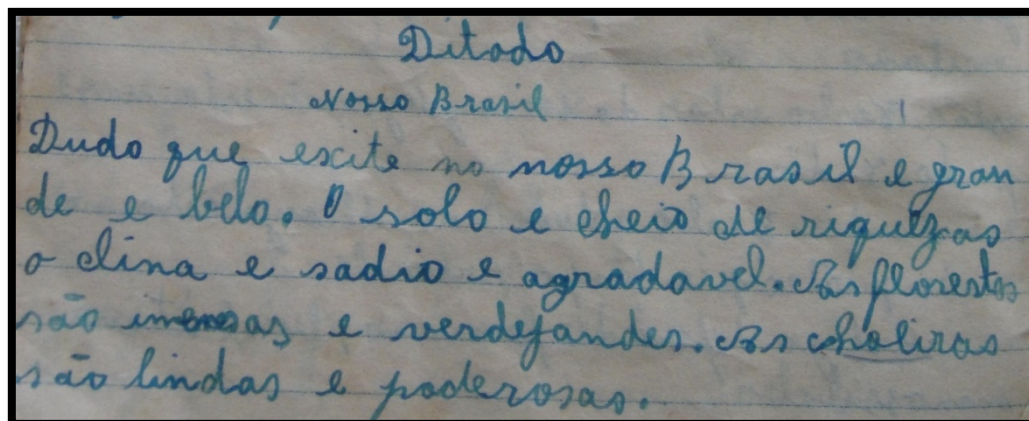 Ditado
Nosso Brasil
Dudo que exite no nosso Brasil e gran
de e belo. O solo e cheio de riquezas
o clina e sadio e agradavel. As florestas
são imensas e verdejandes. As choliras
são lindas e poderosas.